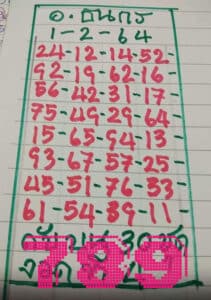 อ.ธนกร
1-2-64
24-12-14-52-
92-19-62-16-
56-42-31-17-
75-49-29-64-
15-65-94-13-
93-67-57-25-
45-51-76-53-
61-54-39-11-
789